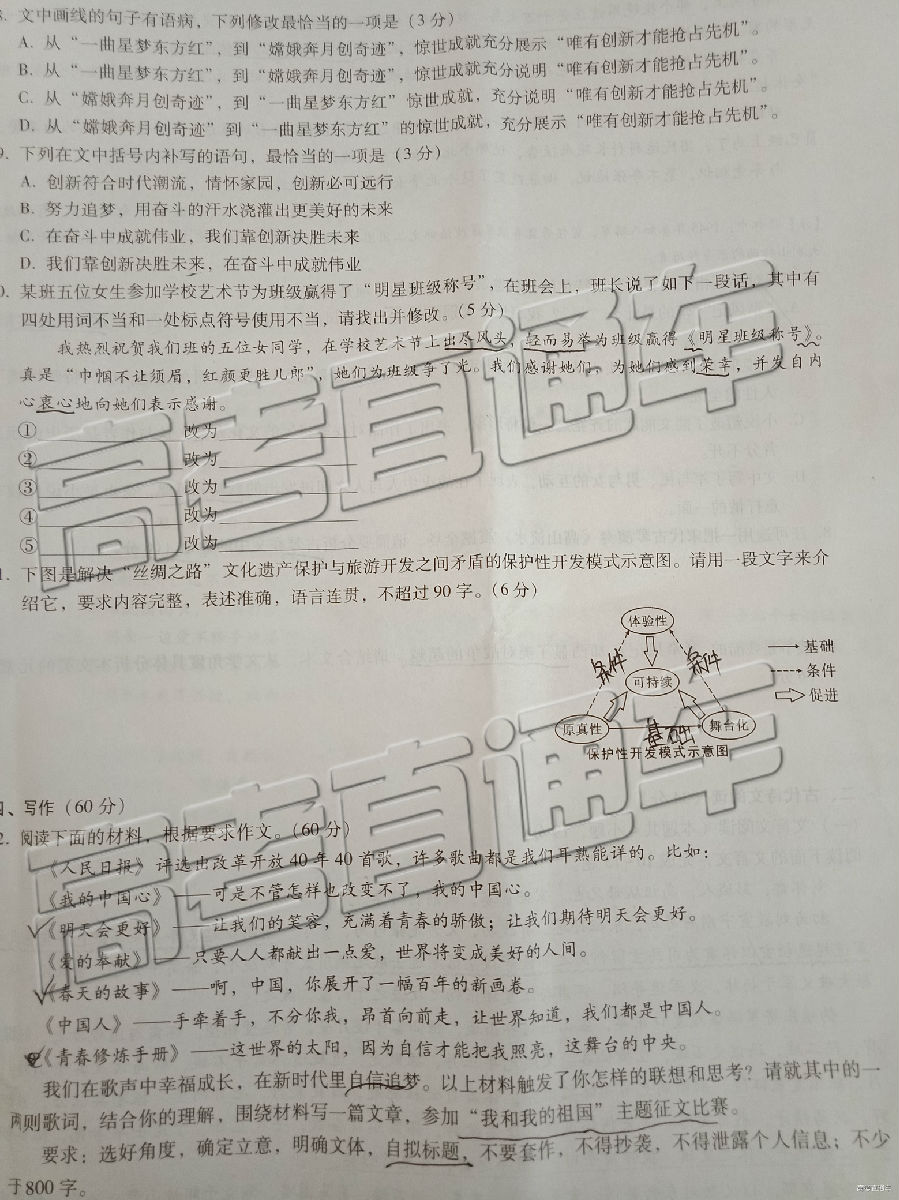 文中画线的句子有语病，下列修改最恰当的一项是（3分）
A．从“一曲星梦东方红”，到“嫦娥奔月创奇迹”，惊世成就充分展示“唯有创新才能抢占先机”。
B．从“一曲星梦东方红”，到“嫦娥奔月创奇迹”，惊世成就充分说明“唯有创新才能抢占先机”。
C．从“嫦娥奔月创奇迹”，到“一曲星梦东方红”惊世成就，充分说明“唯有创新才能抢占先机”。
D．从“嫦娥奔月创奇迹”到“一曲星梦东方红”的惊世成就，充分展示“唯有创新才能抢占先机”。
9．下列在文中括号内补写的语句，最恰当的一项是（3分）
A．创新符合时代潮流，情怀家园，创新必可远行
B．努力追梦，用奋斗的汗水浇灌出更美好的未来
C．在奋斗中成就伟业，我们靠创新决胜未来
D．我们靠创新决胜未来，在奋斗中成就伟业
0．某班五位女生参加学校艺术节为班级赢得了“明星班级称号”，在班会上，班长说了如下一段话，其中有
四处用词不当和一处标点符号使用不当，请找出并修改。（5分）
我热烈祝贺我们班的五位女同学，在学校艺术节上出尽风头，轻而易举为班级赢得《明星班级称号》。
真是“巾帼不让须眉，红颜更胜儿郎”，她们为班级争了光。我们感谢她们，为她们感到荣幸，并发自内
心衷心地向她们表示感谢。
①____________改为____________
②____________改为____________
③____________改为____________
④____________改为____________
⑤____________改为____________
1．下图是解决“丝绸之路”文化遗产保护与旅游开发之间矛盾的保护性开发模式示意图。请用一段文字来介
绍它，要求内容完整，表述准确，语言连贯，不超过90字。（6分）
体验性
条件 条件
可持续
原真性 基础 舞台化
基础
条件
促进
保护性开发模式示意图
四、写作（60分）
2．阅读下面的材料，根据要求作文。（60分）
《人民日报》评选出改革开放40年40首歌，许多歌曲都是我们耳熟能详的。比如：
《我的中国心》——可是不管怎样也改变不了，我的中国心。
《明天会更好》——让我们的笑容，充满着青春的骄傲；让我们期待明天会更好。
《爱的奉献》——只要人人都献出一点爱，世界将变成美好的人间。
《春天的故事》——啊，中国，你展开了一幅百年的新画卷。
《中国人》——手牵着手，不分你我，昂首向前走，让世界知道，我们都是中国人。
《青春修炼手册》——这世界的太阳，因为自信才能把我照亮，这舞台的中央。
我们在歌声中幸福成长，在新时代里自信追梦。以上材料触发了你怎样的联想和思考？请就其中的一
两则歌词，结合你的理解，围绕材料写一篇文章，参加“我和我的祖国”主题征文比赛。
要求：选好角度，确定立意，明确文体，自拟标题，不要套作，不得抄袭，不得泄露个人信息；不少
于800字。
高考直通车
高考直通车